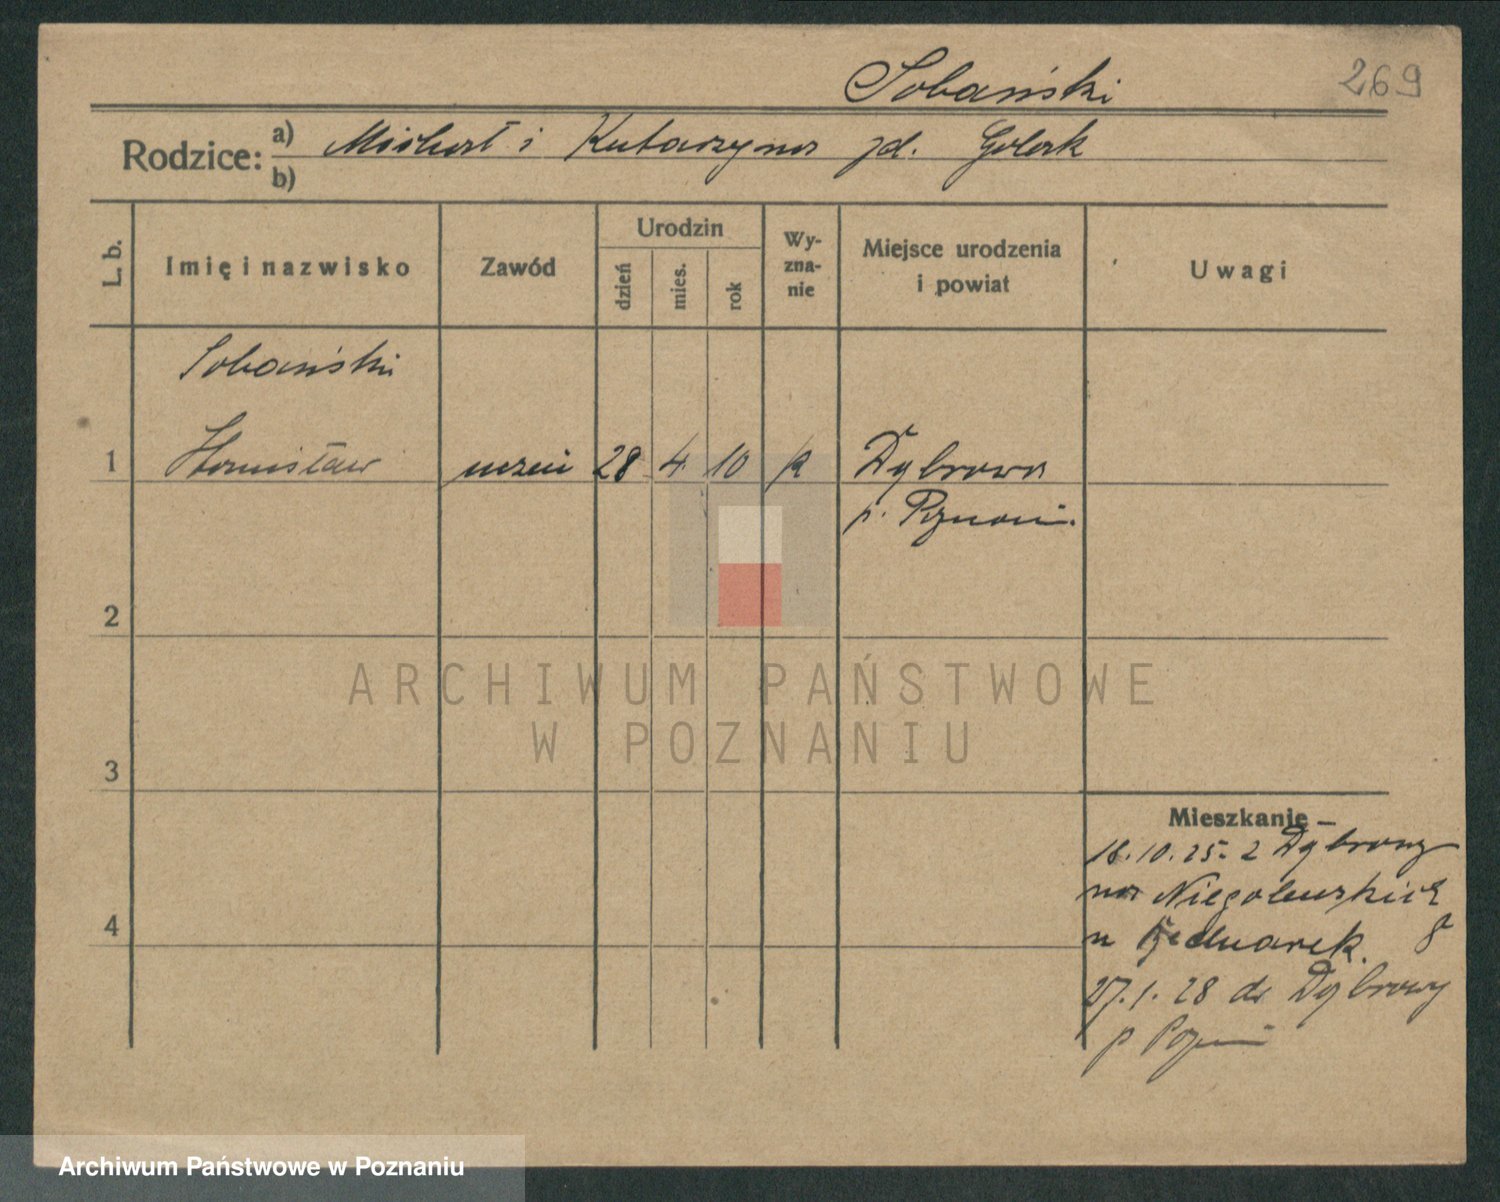 Sobański
269
Rodzice: a) Michał i Katarzyna zd. Golak
b)
L. b.
Imię i nazwisko
Zawód
Urodzin
dzień
mies.
rok
Wy-
zna-
nie
Miejsce urodzenia
i powiat
Uwagi
Sobański
1 Stanisław uczeń 28 4 10 k Dąbrowa
p. Poznań.
2
3
4
Mieszkanie
18.10.25. z Dąbrowy
na Niegolewskich
u Bednarek. 8
27.1.28 do Dąbrowy
p Poznań
ARCHIWUM PAŃSTWOWE
W POZNANIU
Archiwum Państwowe w Poznaniu